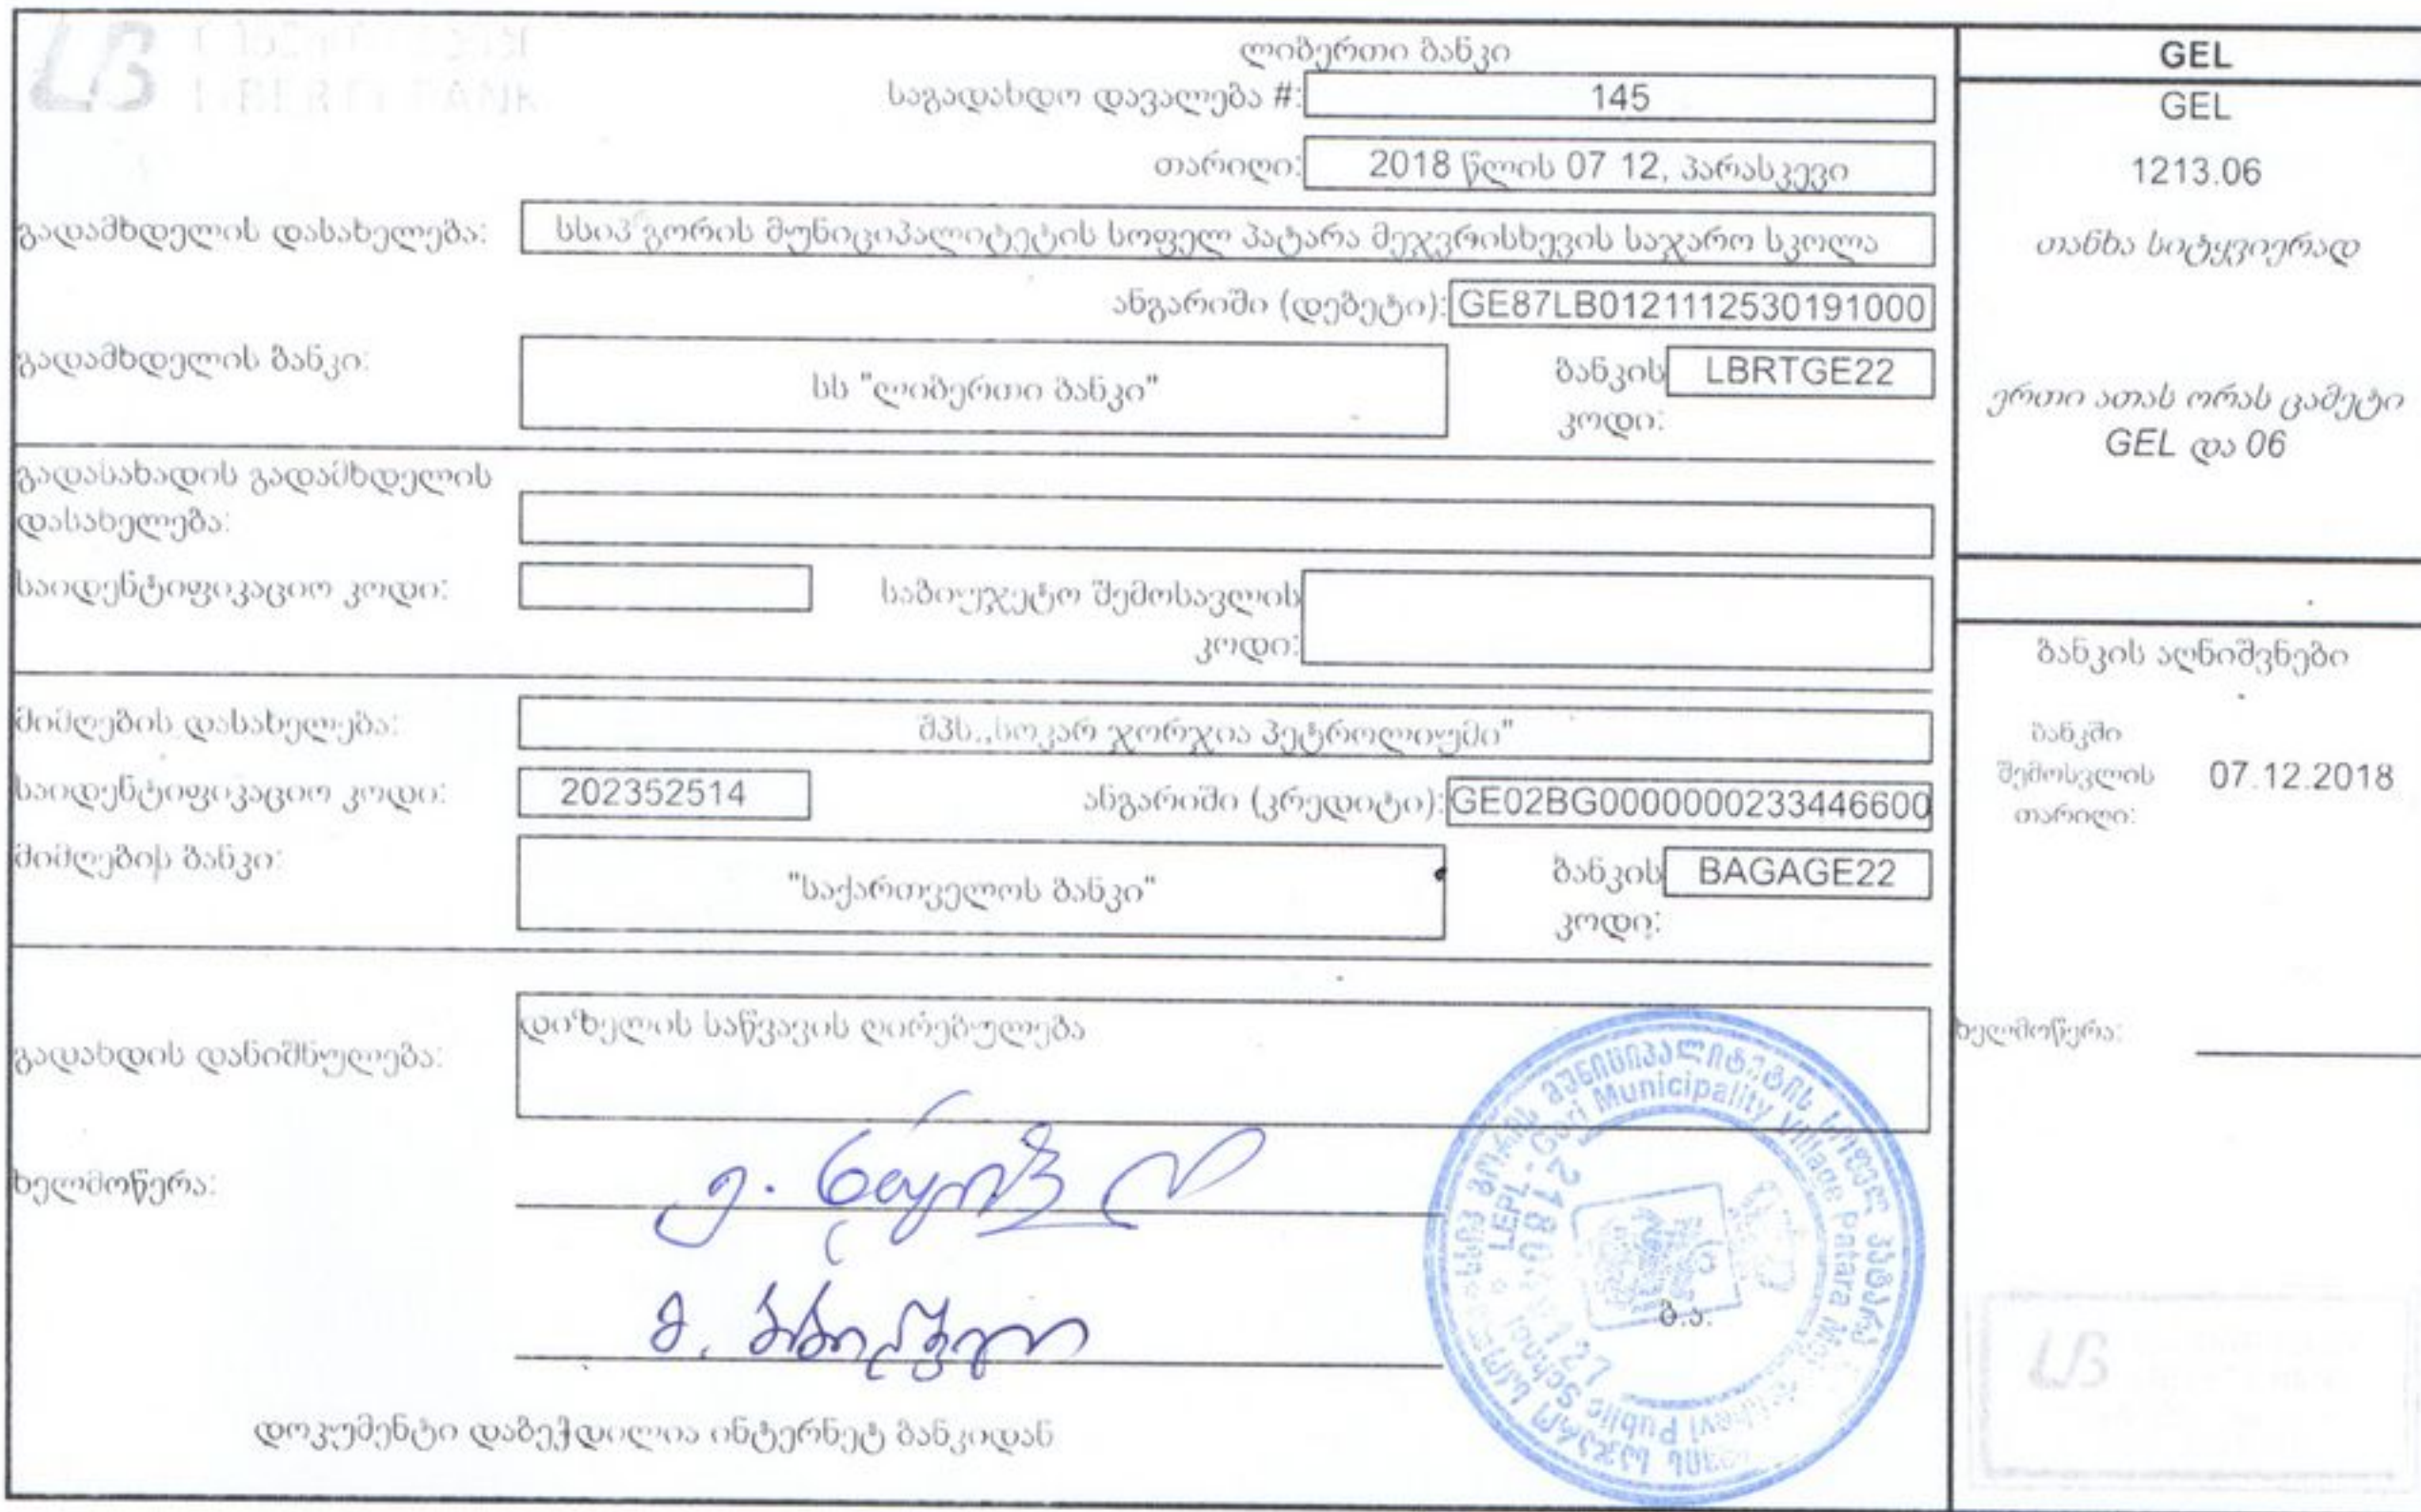 ლიბერთი ბანკი
საგადახდო დავალება #: 145
თარიღი: 2018 წლის 07 12, პარასკევი
გადამხდელის დასახელება: სსიპ გორის მუნიციპალიტეტის სოფელ პატარა მეჯვრისხევის საჯარო სკოლა
ანგარიში (დებეტი): GE87LB0121112530191000
გადამხდელის ბანკი: სს "ლიბერთი ბანკი" ბანკის კოდი: LBRTGE22
გადასახადის გადამხდელის
დასახელება:
საიდენტიფიკაციო კოდი: საბიუჯეტო შემოსავლის
კოდი:
მიმღების დასახელება: შპს,,სოკარ ჯორჯია პეტროლიუმი"
საიდენტიფიკაციო კოდი: 202352514 ანგარიში (კრედიტი): GE02BG0000000233446600
მიმღების ბანკი: "საქართველოს ბანკი" ბანკის კოდი: BAGAGE22
გადახდის დანიშნულება: დიზელის საწვავის ღირებულება
ხელმოწერა:
ბ.ა.
დოკუმენტი დაბეჭდილია ინტერნეტ ბანკიდან
GEL
GEL
1213.06
თანხა სიტყვიერად
ერთი ათას ორას ცამეტი
GEL და 06
ბანკის აღნიშვნები
ბანკში
შემოსვლის 07.12.2018
თარიღი:
ხელმოწერა:
LB
LIBERTY BANK
სსიპ გორის მუნიციპალიტეტის სოფელ პატარა
საჯარო სკოლა
LEPL-Gori Municipality Village Patara
Public School
LB